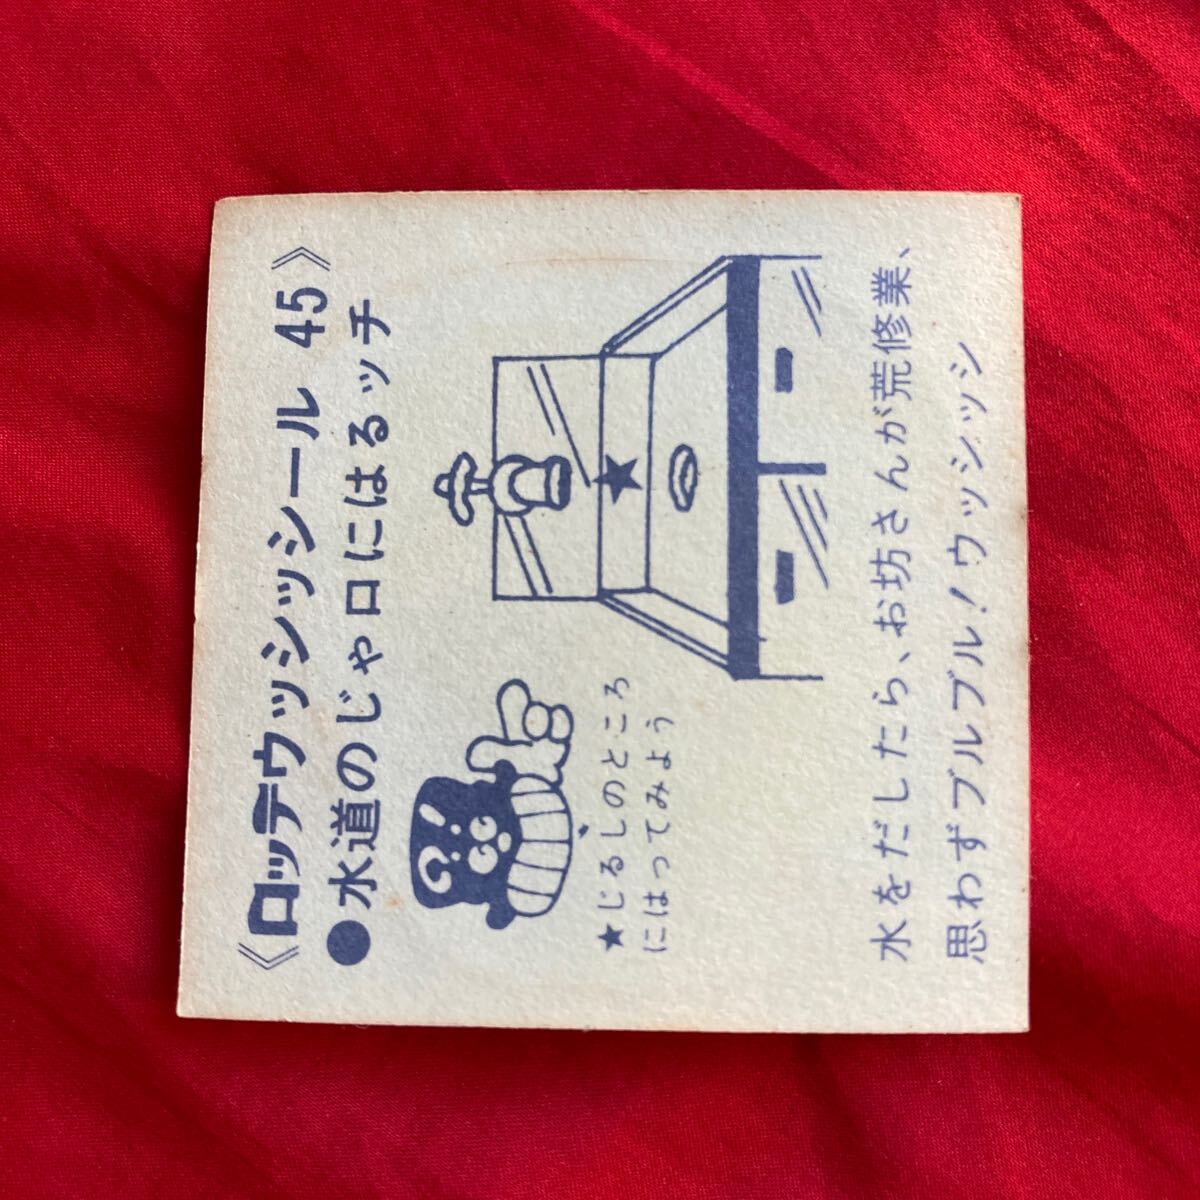 《ロッテウッシッシール 45》
●水道のじゃ口にはるッチ
?!
★じるしのところ
にはってみよう
水をだしたら、お坊さんが荒修業、
思わずブルブル!ウッシッシ